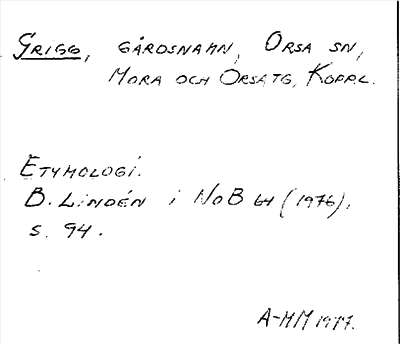 Grigg, gårdsnamn, Orsa sn,
Mora och Orsa tg, Koppl.
Etymologi.
B. Lindén i NoB 64 (1976),
s. 94.
A-MM 1977.